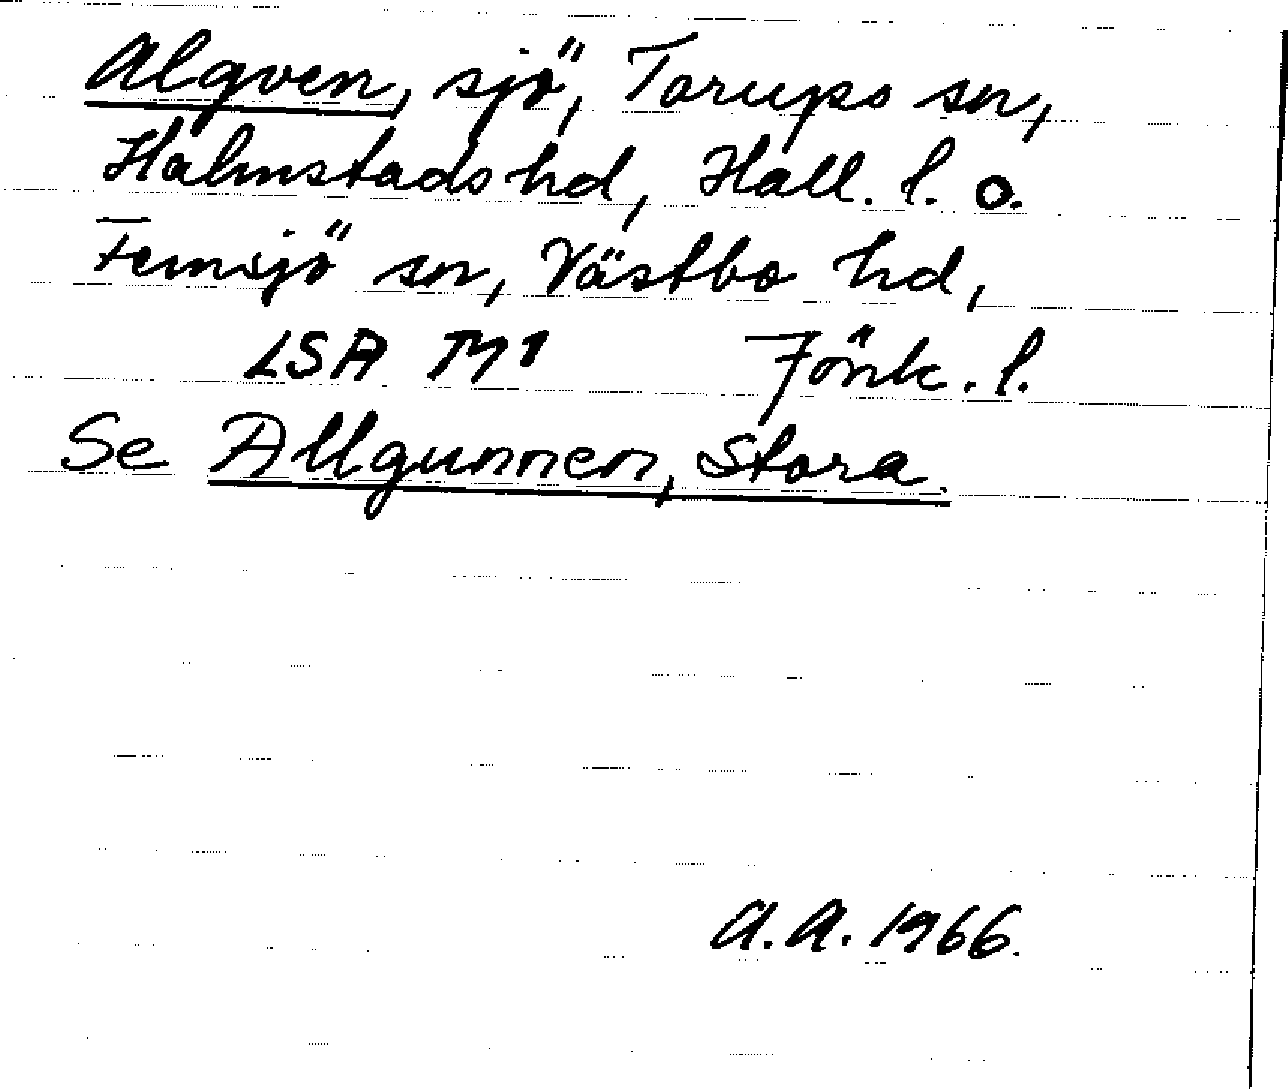 Algven, sjö, Torups sn,
Halmstads hd, Hall. l. o.
Femsjö sn, Västbo hd,
LSA Jönk. l.
Se Allgunnen, Stora.
A.A. 1966.